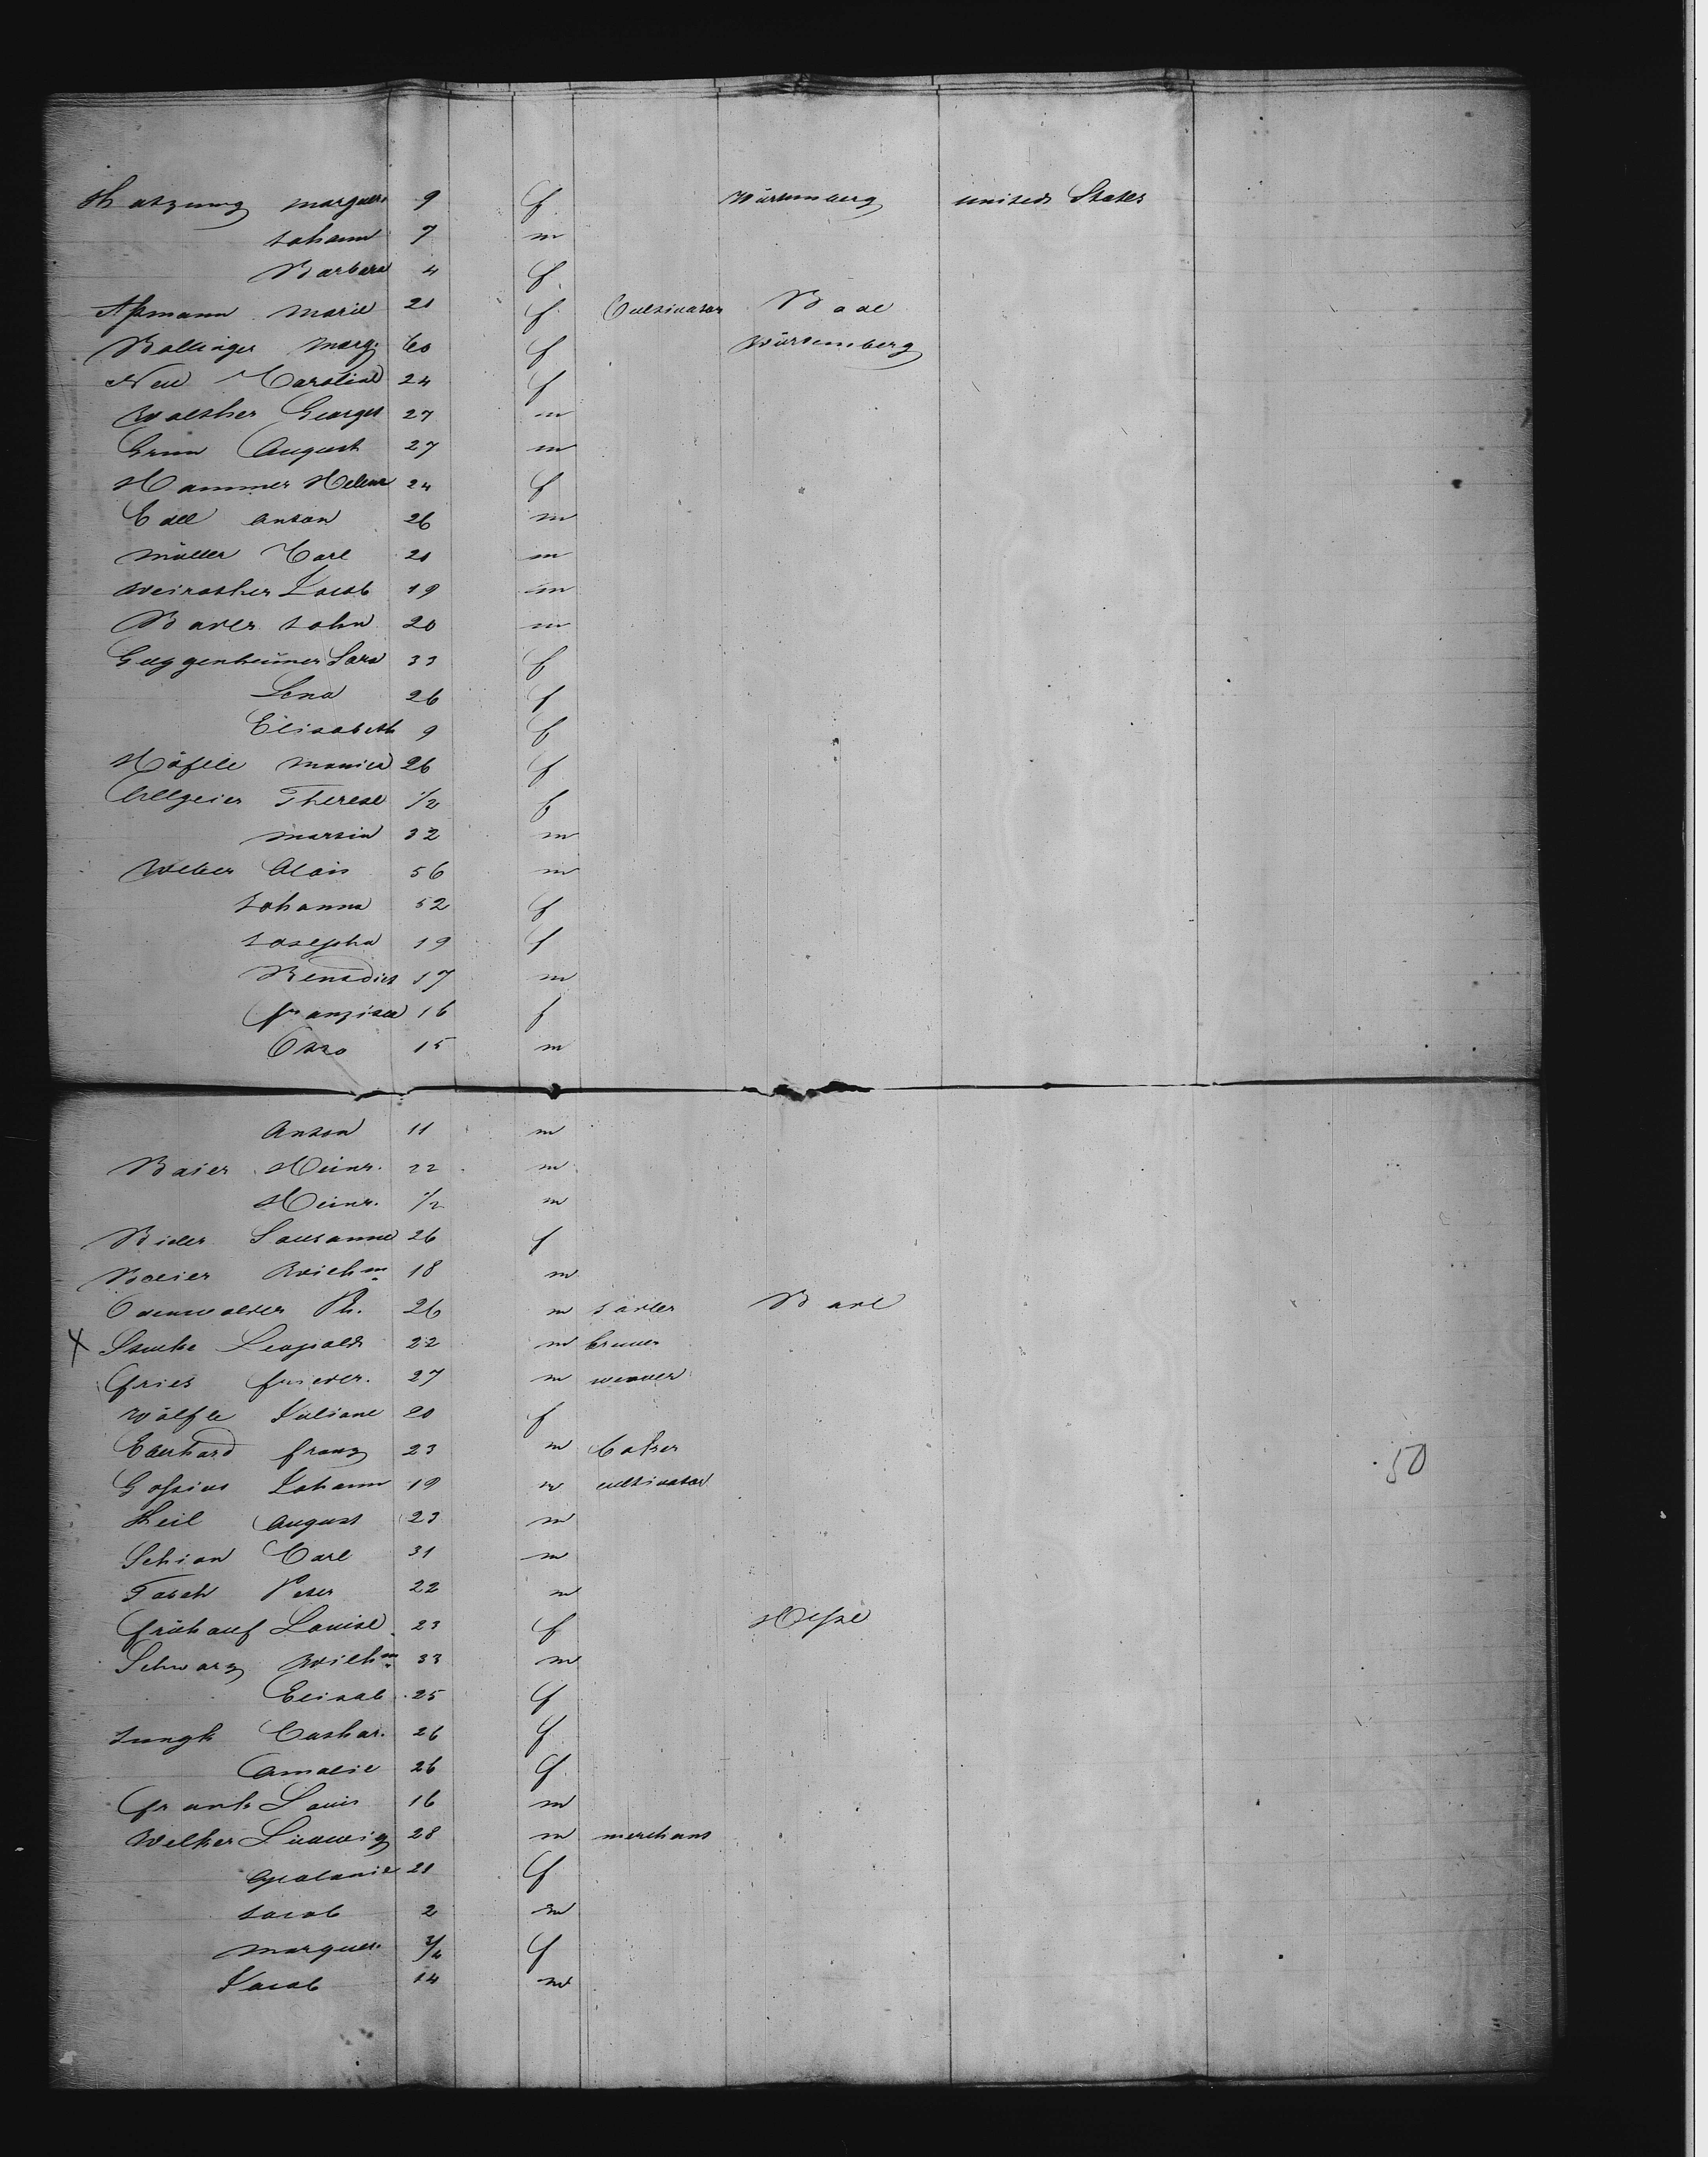 Hatzung Marguer. 9 f Würtemberg united States
Johann 7 m
Barbara 4 f
Aßmann Marie 21 f Cultivator Bade
Bollinger Marg. 60 f Würtemberg
Neu Caroline 24 f
Walther Georges 27 m
Grun August 27 m
Hammer Helene 24 f
Edel Anton 26 m
Müller Carl 21 m
Jacob 19 m
Bader John 20 m
Guggenheimer Sara 33 f
Lena 26 f
Elisabeth 9 f
Höfele 26 f
Allgeier Therese 1/2 f
Martin 32 m
Weber Alois 56 m
Johanna 52 f
Josepha 19 f
Benedict 17 m
Franzisca 16 f
Otto 15 m
Anton 11 m
Baier Heinr. 22 m
Heinr. 1/2 m
Bider Sousanne 26 f
Wilhm 18 m
Odenwalder Ph. 26 m Bade
X Leopold 22 m
Fries Frieder. 27 m weaver
Wölfle Juliane 20 f
Eberhard Franz 23 m baker
Johann 19 m cultivator
Keil August 23 m
Schion Carl 31 m
Tasch Peter 22 m
50
Frühauf Louise 23 f Hesse
Schwarz Wilhm 33 m
Elisab 25 f
Jungk Cathar. 26 f
Amalie 26 f
Frank Louis 16 m
Welker Ludwig 28 m merchant
21 f
Jacob 2 m
Marguer. 3/4 f
Jacob 14 m